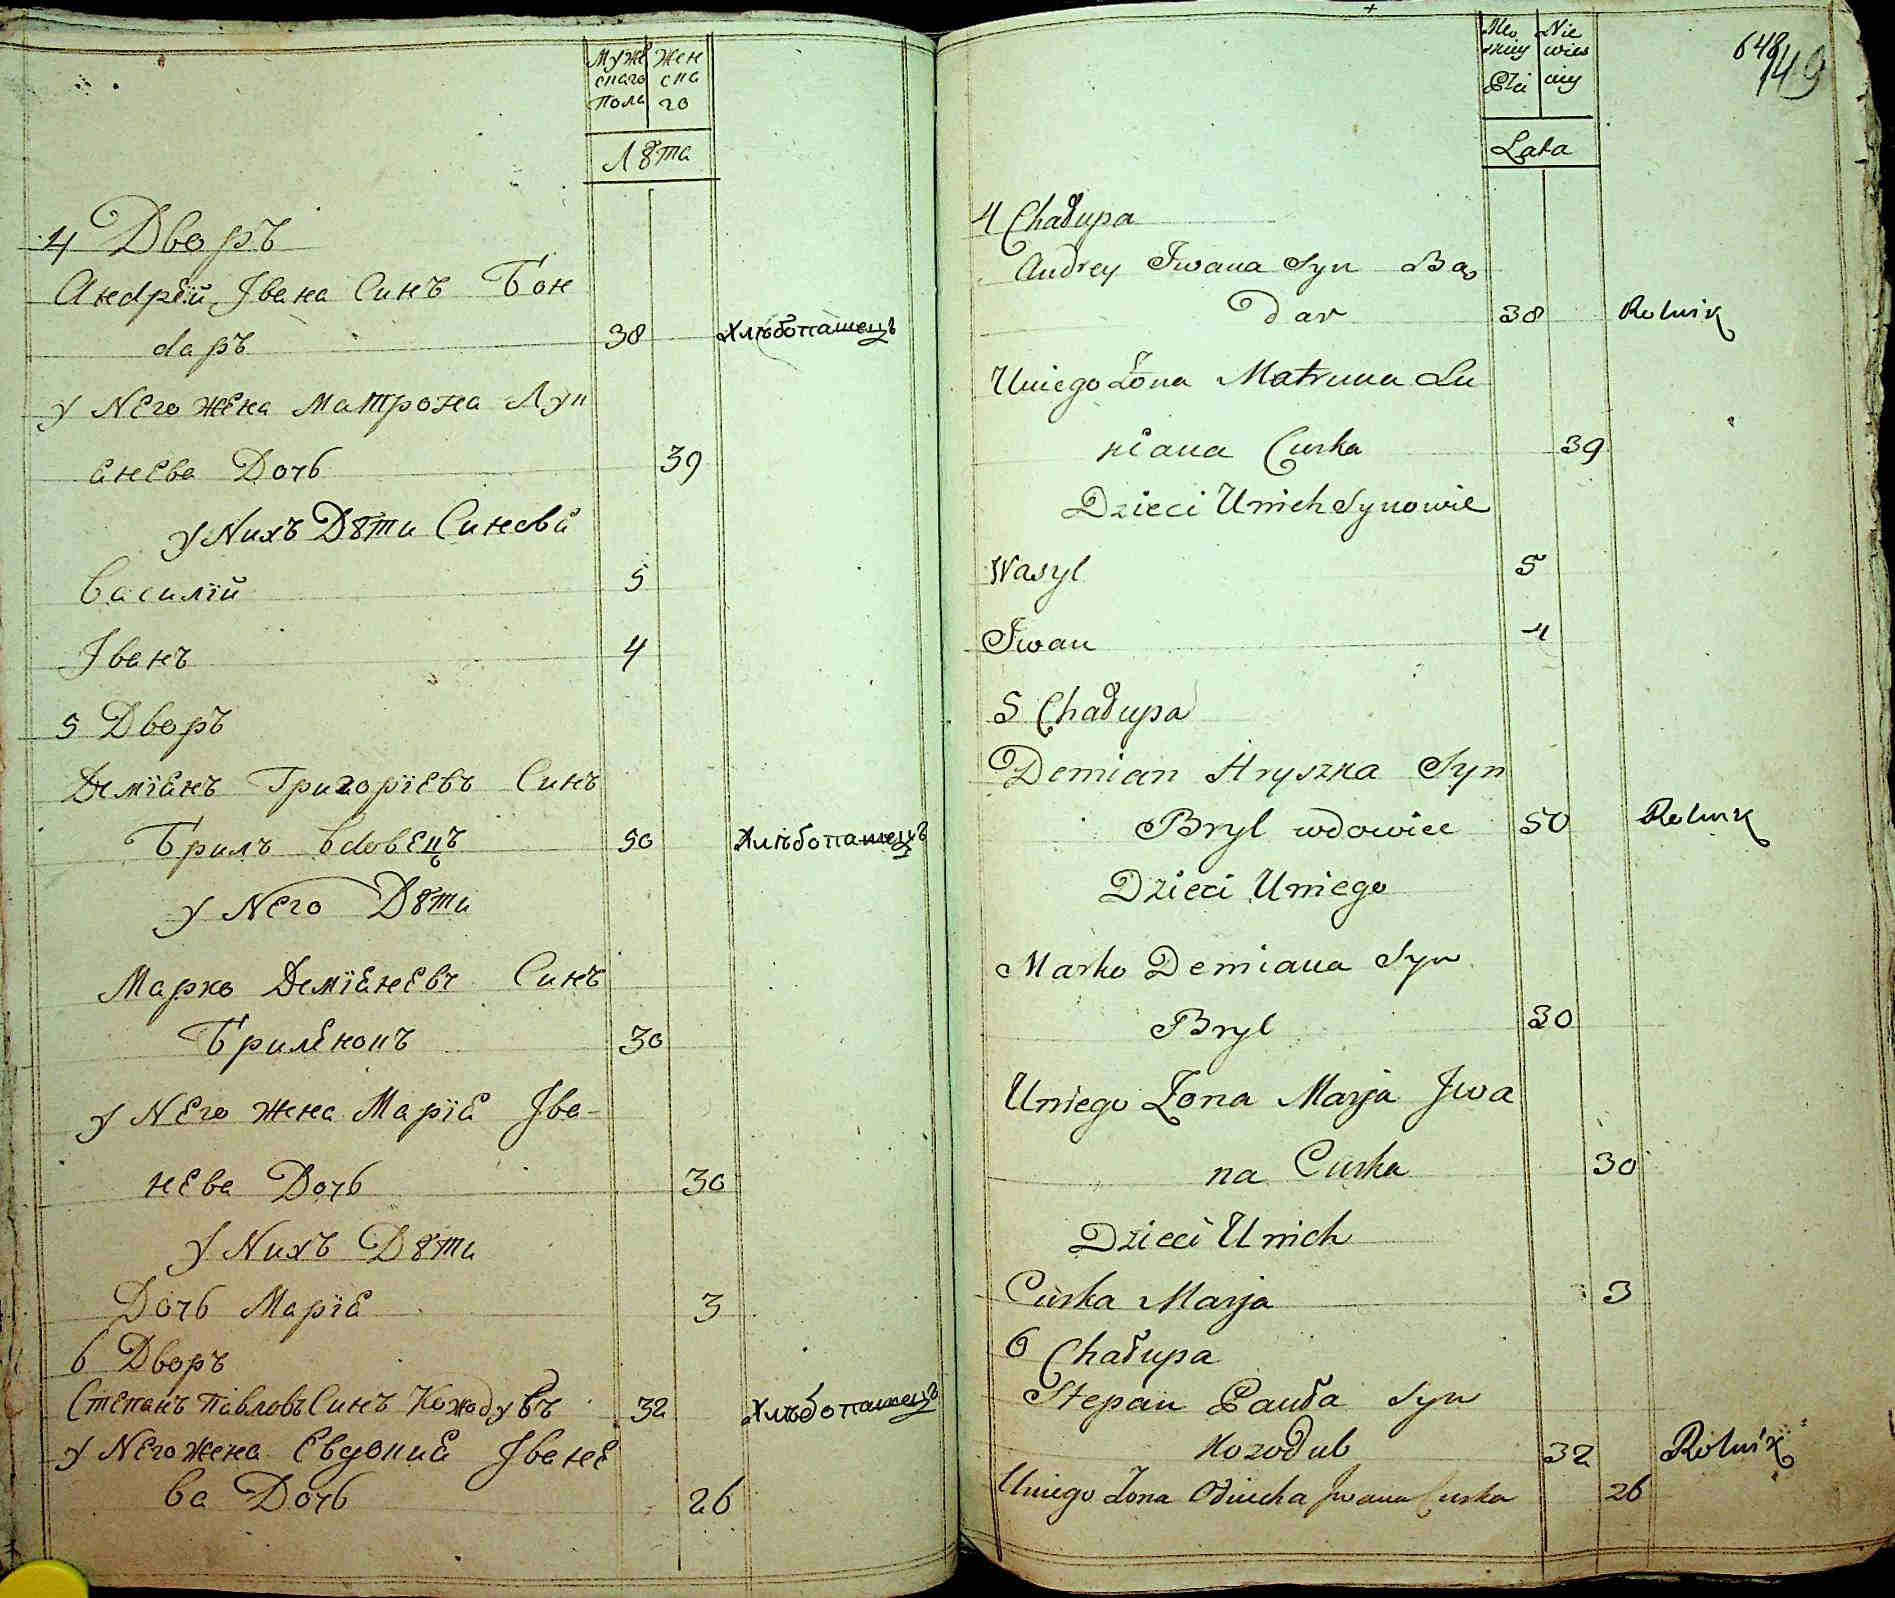 Муже Жен
скаго ска
Пола го
Лѣта
4 Дворъ
Андрѣй Івана Синъ Бон
даръ 38 Хлѣбопашецъ
у Него жена Матрона Луп
анева Дочь 39
у Нихъ Дѣти Синовя
Василій 5
Іванъ 4
5 Дворъ
Деміянъ Григоріевъ Синъ
Брилъ вдовецъ 50 Хлѣбопашецъ
у Него Дѣти
Марко Деміяневъ Синъ
Бриленокъ 30
у Него жена Марія Іва-
нева Дочь 30
у Нихъ Дѣти
Дочь Марія 3
6 Дворъ
Степанъ Павловъ Синъ Кожодувъ 32 Хлѣбопашецъ
у Него жена Евдокия Іване
ва Дочь 26
649
149
Męs Nie
kiey wies
Płci ciey
Lata
4 Chałupa
Andrey Iwana Syn Bą
dar 38 Rolnik
Uniego Żona Matruna Łu
piana Curka 39
Dzieci Unich Synowie
Wasyl 5
Iwan 4
5 Chałupa
Demian Hryszka Syn
Bryl wdowiec 50 Rolnik
Dzieci Uniego
Marko Demiana Syn
Bryl 30
Uniego Zona Marja Jwa
na Curka 30
Dzieci Unich
Curka Marja 3
6 Chałupa
Stepan Pauła Syn
Kozodub 32 Rolnik
Uniego Zona Odiucha Jwana Curka 26